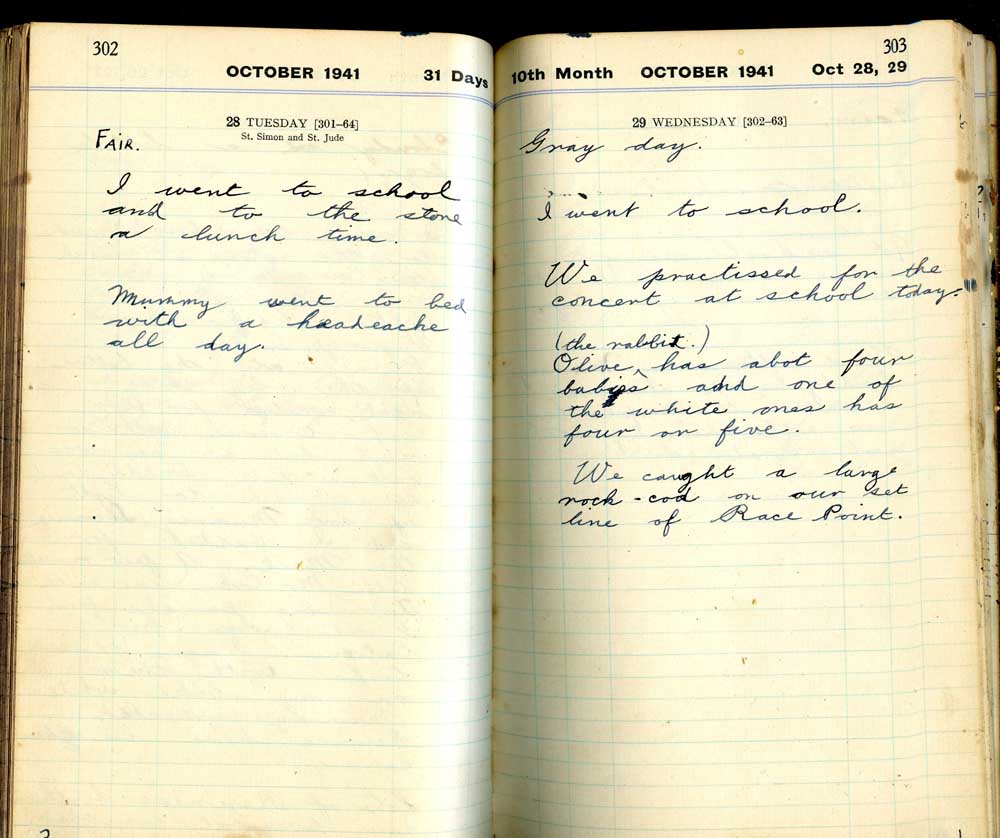 302
OCTOBER 1941 31 Days
28 TUESDAY [301–64]
St. Simon and St. Jude
FAIR.
I went to school
and to the store
a lunch time.
Mummy went to bed
with a headeache
all day.
303
10th Month OCTOBER 1941 Oct 28, 29
29 WEDNESDAY [302–63]
Gray day.
I went to school.
We practissed for the
concert at school today.
(the rabbit.)
Olive ^ has abot four
babies and one of
the white ones has
four or five.
We caught a large
rock-cod on our set
line of Race Point.